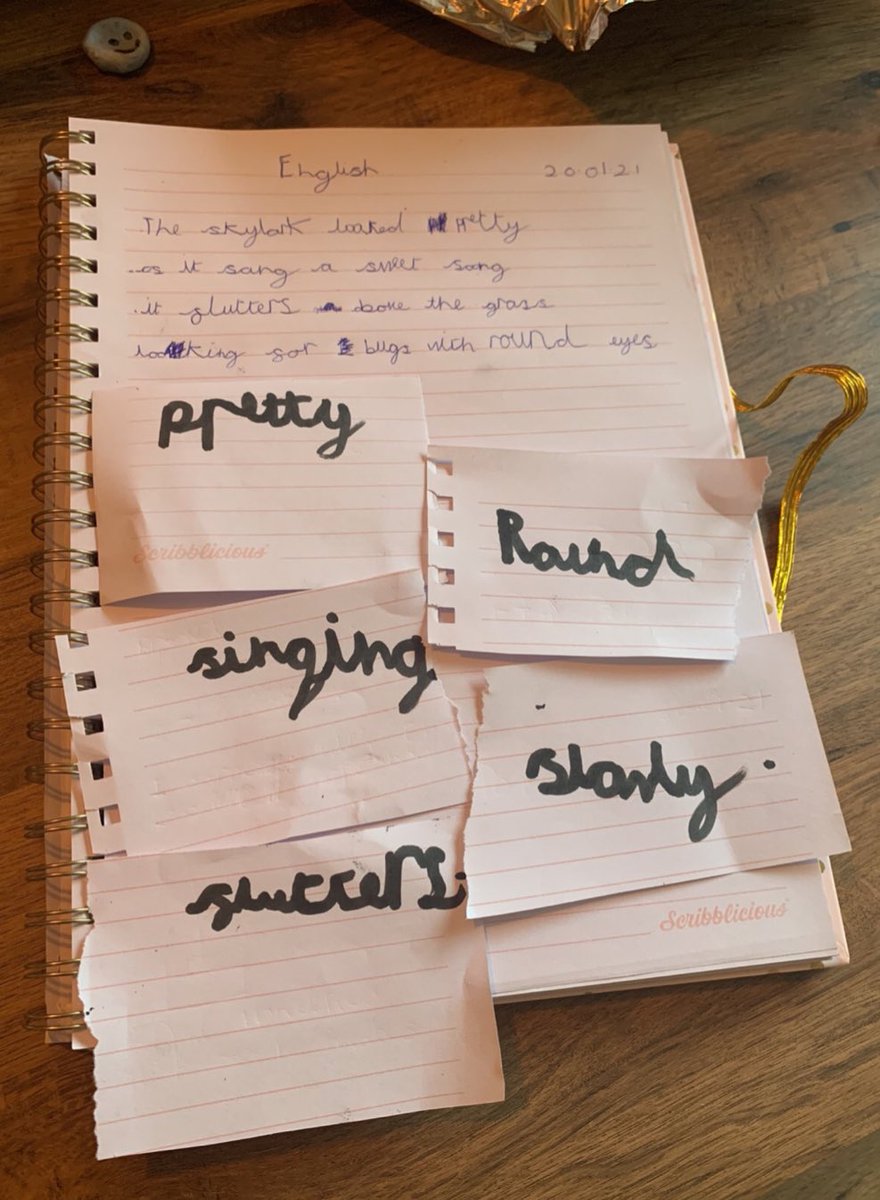 English 20.01.21
The skylark looked pretty
as it sang a sweet song
it flutters above the grass
looking for bugs with round eyes
pretty
Scribblicious
Round
singing
slowly.
flutters.
Scribblicious